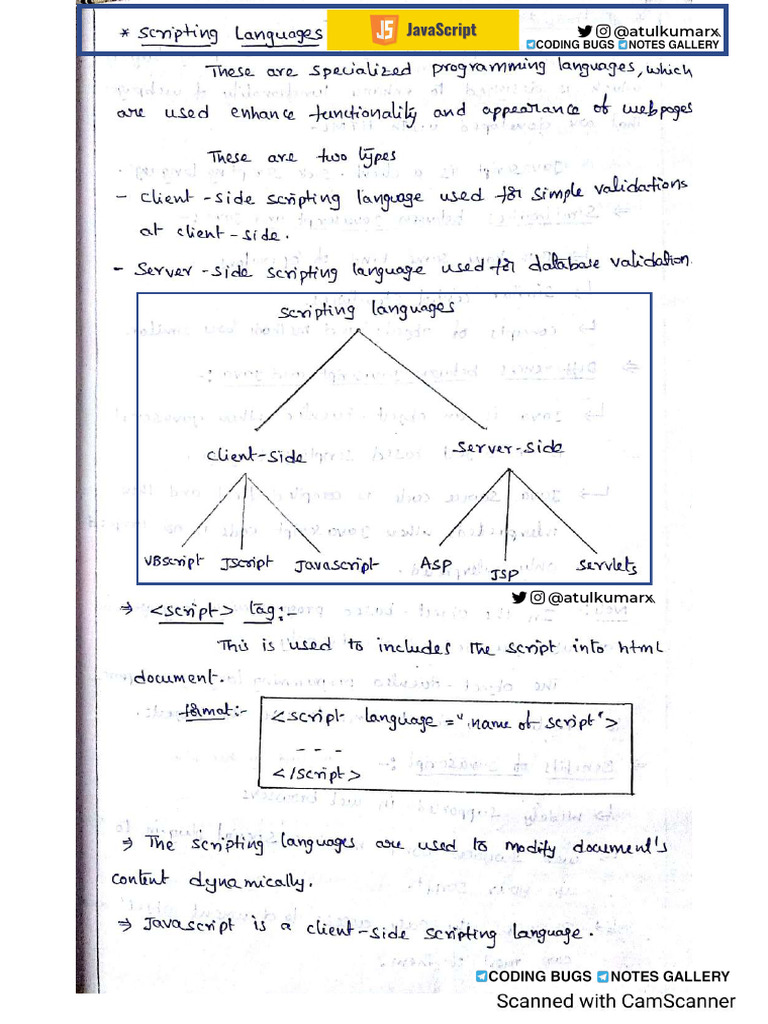 * Scripting Languages
JS JavaScript
@atulkumarx
CODING BUGS NOTES GALLERY
These are specialized programming languages, which
are used enhance functionality and appearance of webpages
These are two types
- client-side scripting language used for simple validations
at client-side.
- Server-side scripting language used for database validation.
Scripting languages
client-side
Server-side
VBscript JScript Javascript ASP JSP Servlets
@atulkumarx
⇒ <script> tag:-
This is used to includes the script into html
document.
format:-
<script language="name of script">
- - -
</script>
⇒ The scripting languages are used to modify document's
content dynamically.
⇒ Javascript is a client-side scripting language.
CODING BUGS NOTES GALLERY
Scanned with CamScanner